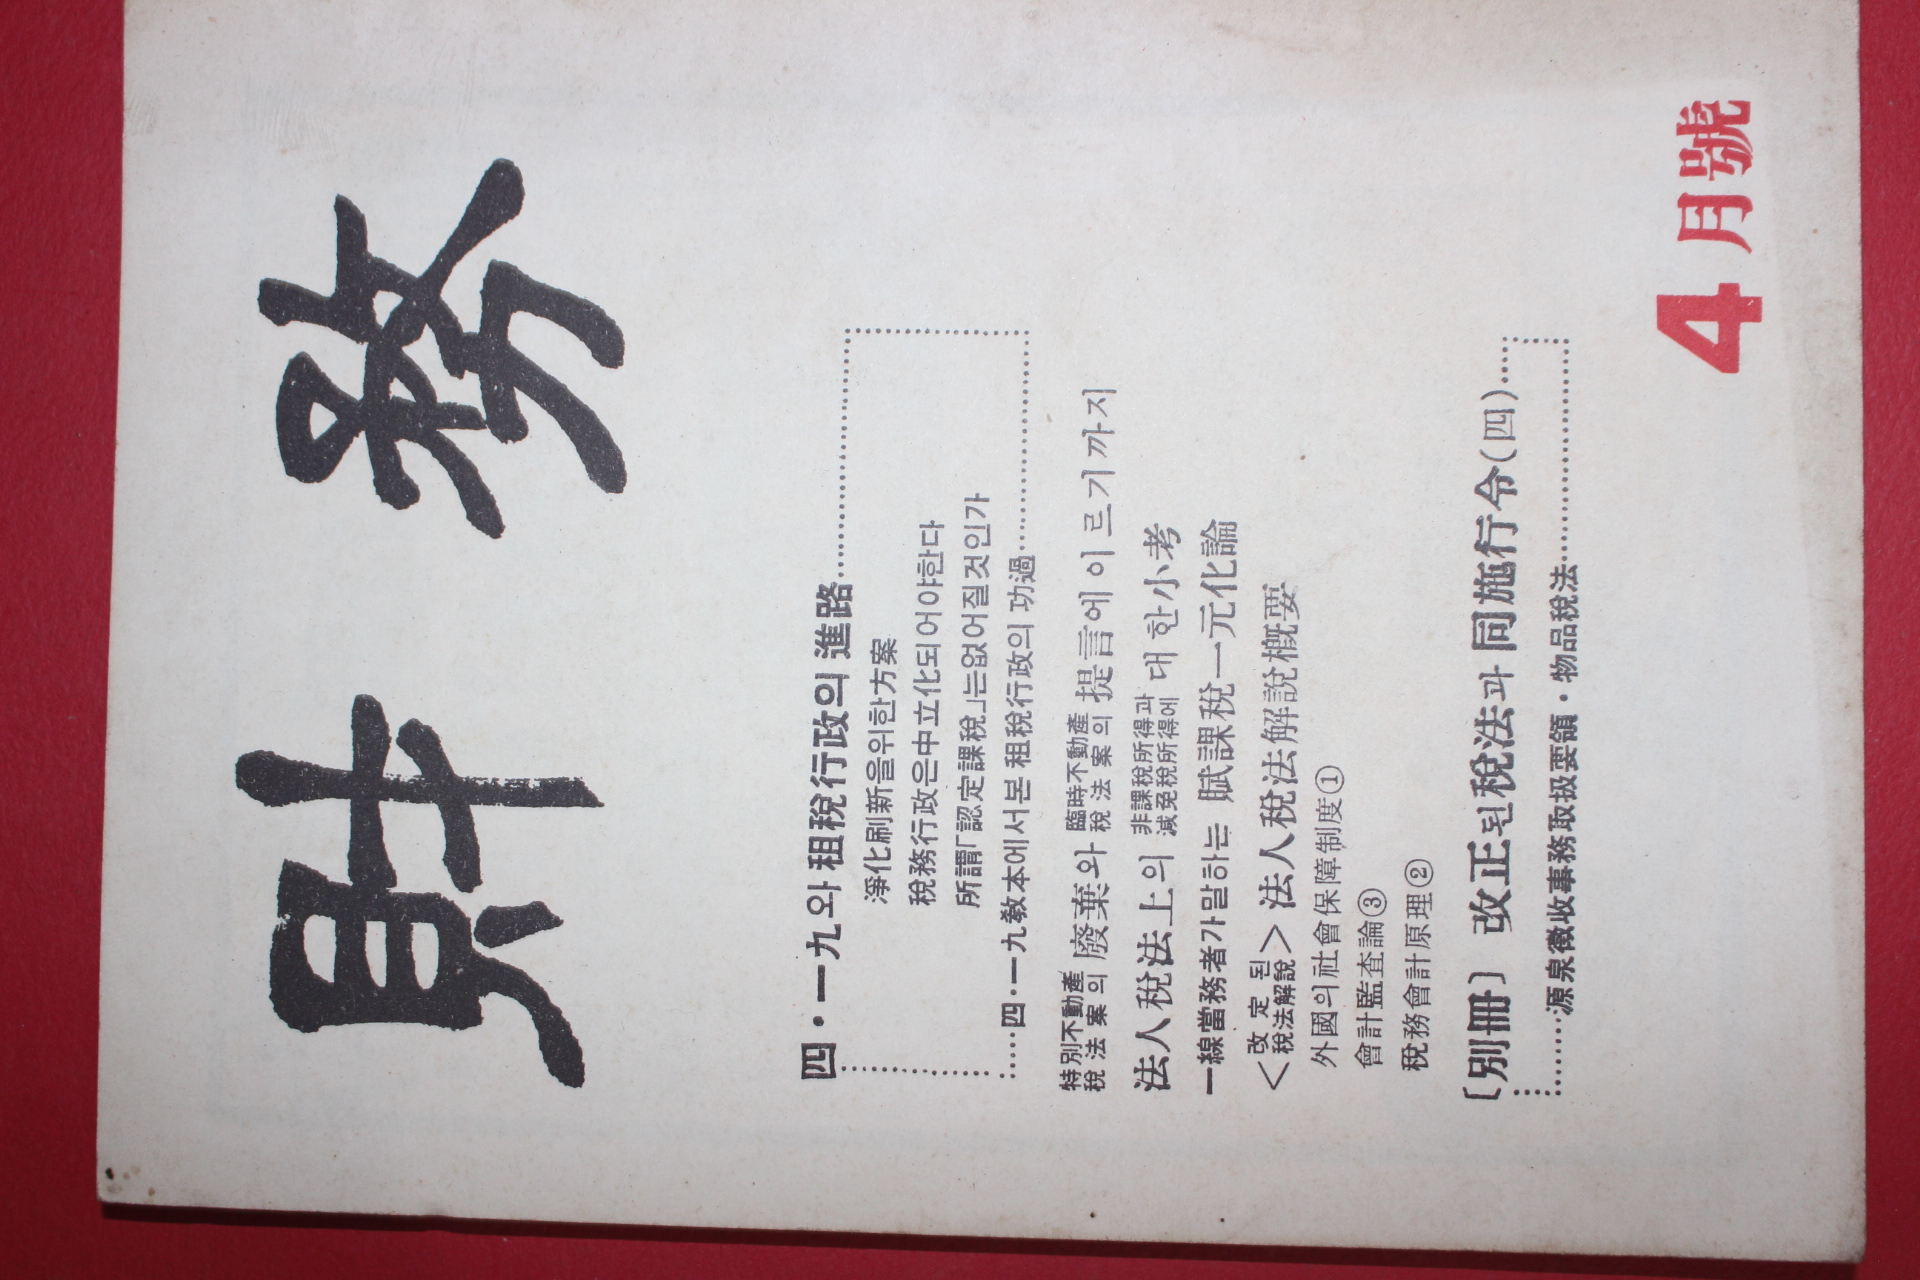 財務
四·一九와 租稅行政의 進路
淨化刷新을위한方案
稅務行政은中立化되어야한다
所謂「認定課稅」는없어질것인가
四·一九敎本에서본 租稅行政의 功過
特別不動產稅法案의 廢棄와 臨時不動產稅法案의 提言에 이르기까지
法人稅法上의 非課稅所得과減免稅所得에 대한小考
一線當務者가말하는 賦課稅一元化論
<改定된稅法解說> 法人稅法解說槪要
外國의社會保障制度①
會計監査論③
稅務會計原理②
〔別冊〕 改正된稅法과 同施行令(四)
源泉徵收事務取扱要領·物品稅法
4月號